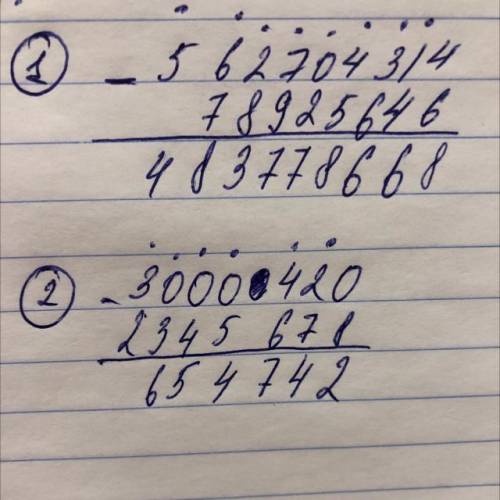 1 - 562704314
78925646
483778668
2 - 3000420
2345678
654742